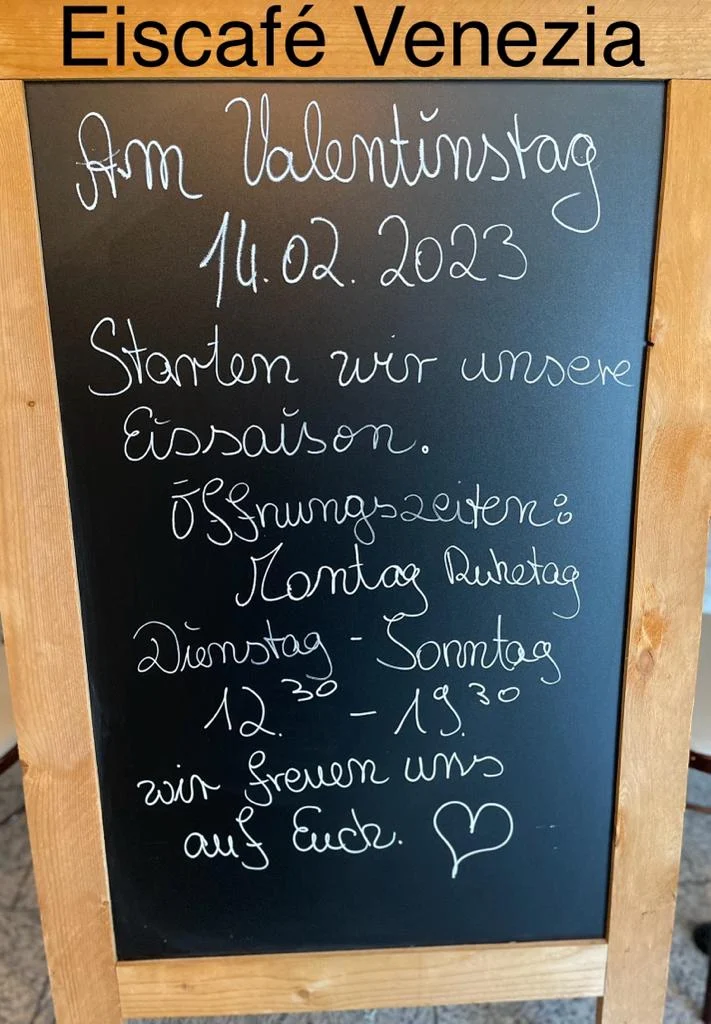 Eiscafé Venezia
Am Valentinstag
14.02.2023
Starten wir unsere
Eissaison.
Öffnungszeiten:
Montag Ruhetag
Dienstag - Sonntag
12.30 - 19.30
wir freuen uns
auf Euch. ♡